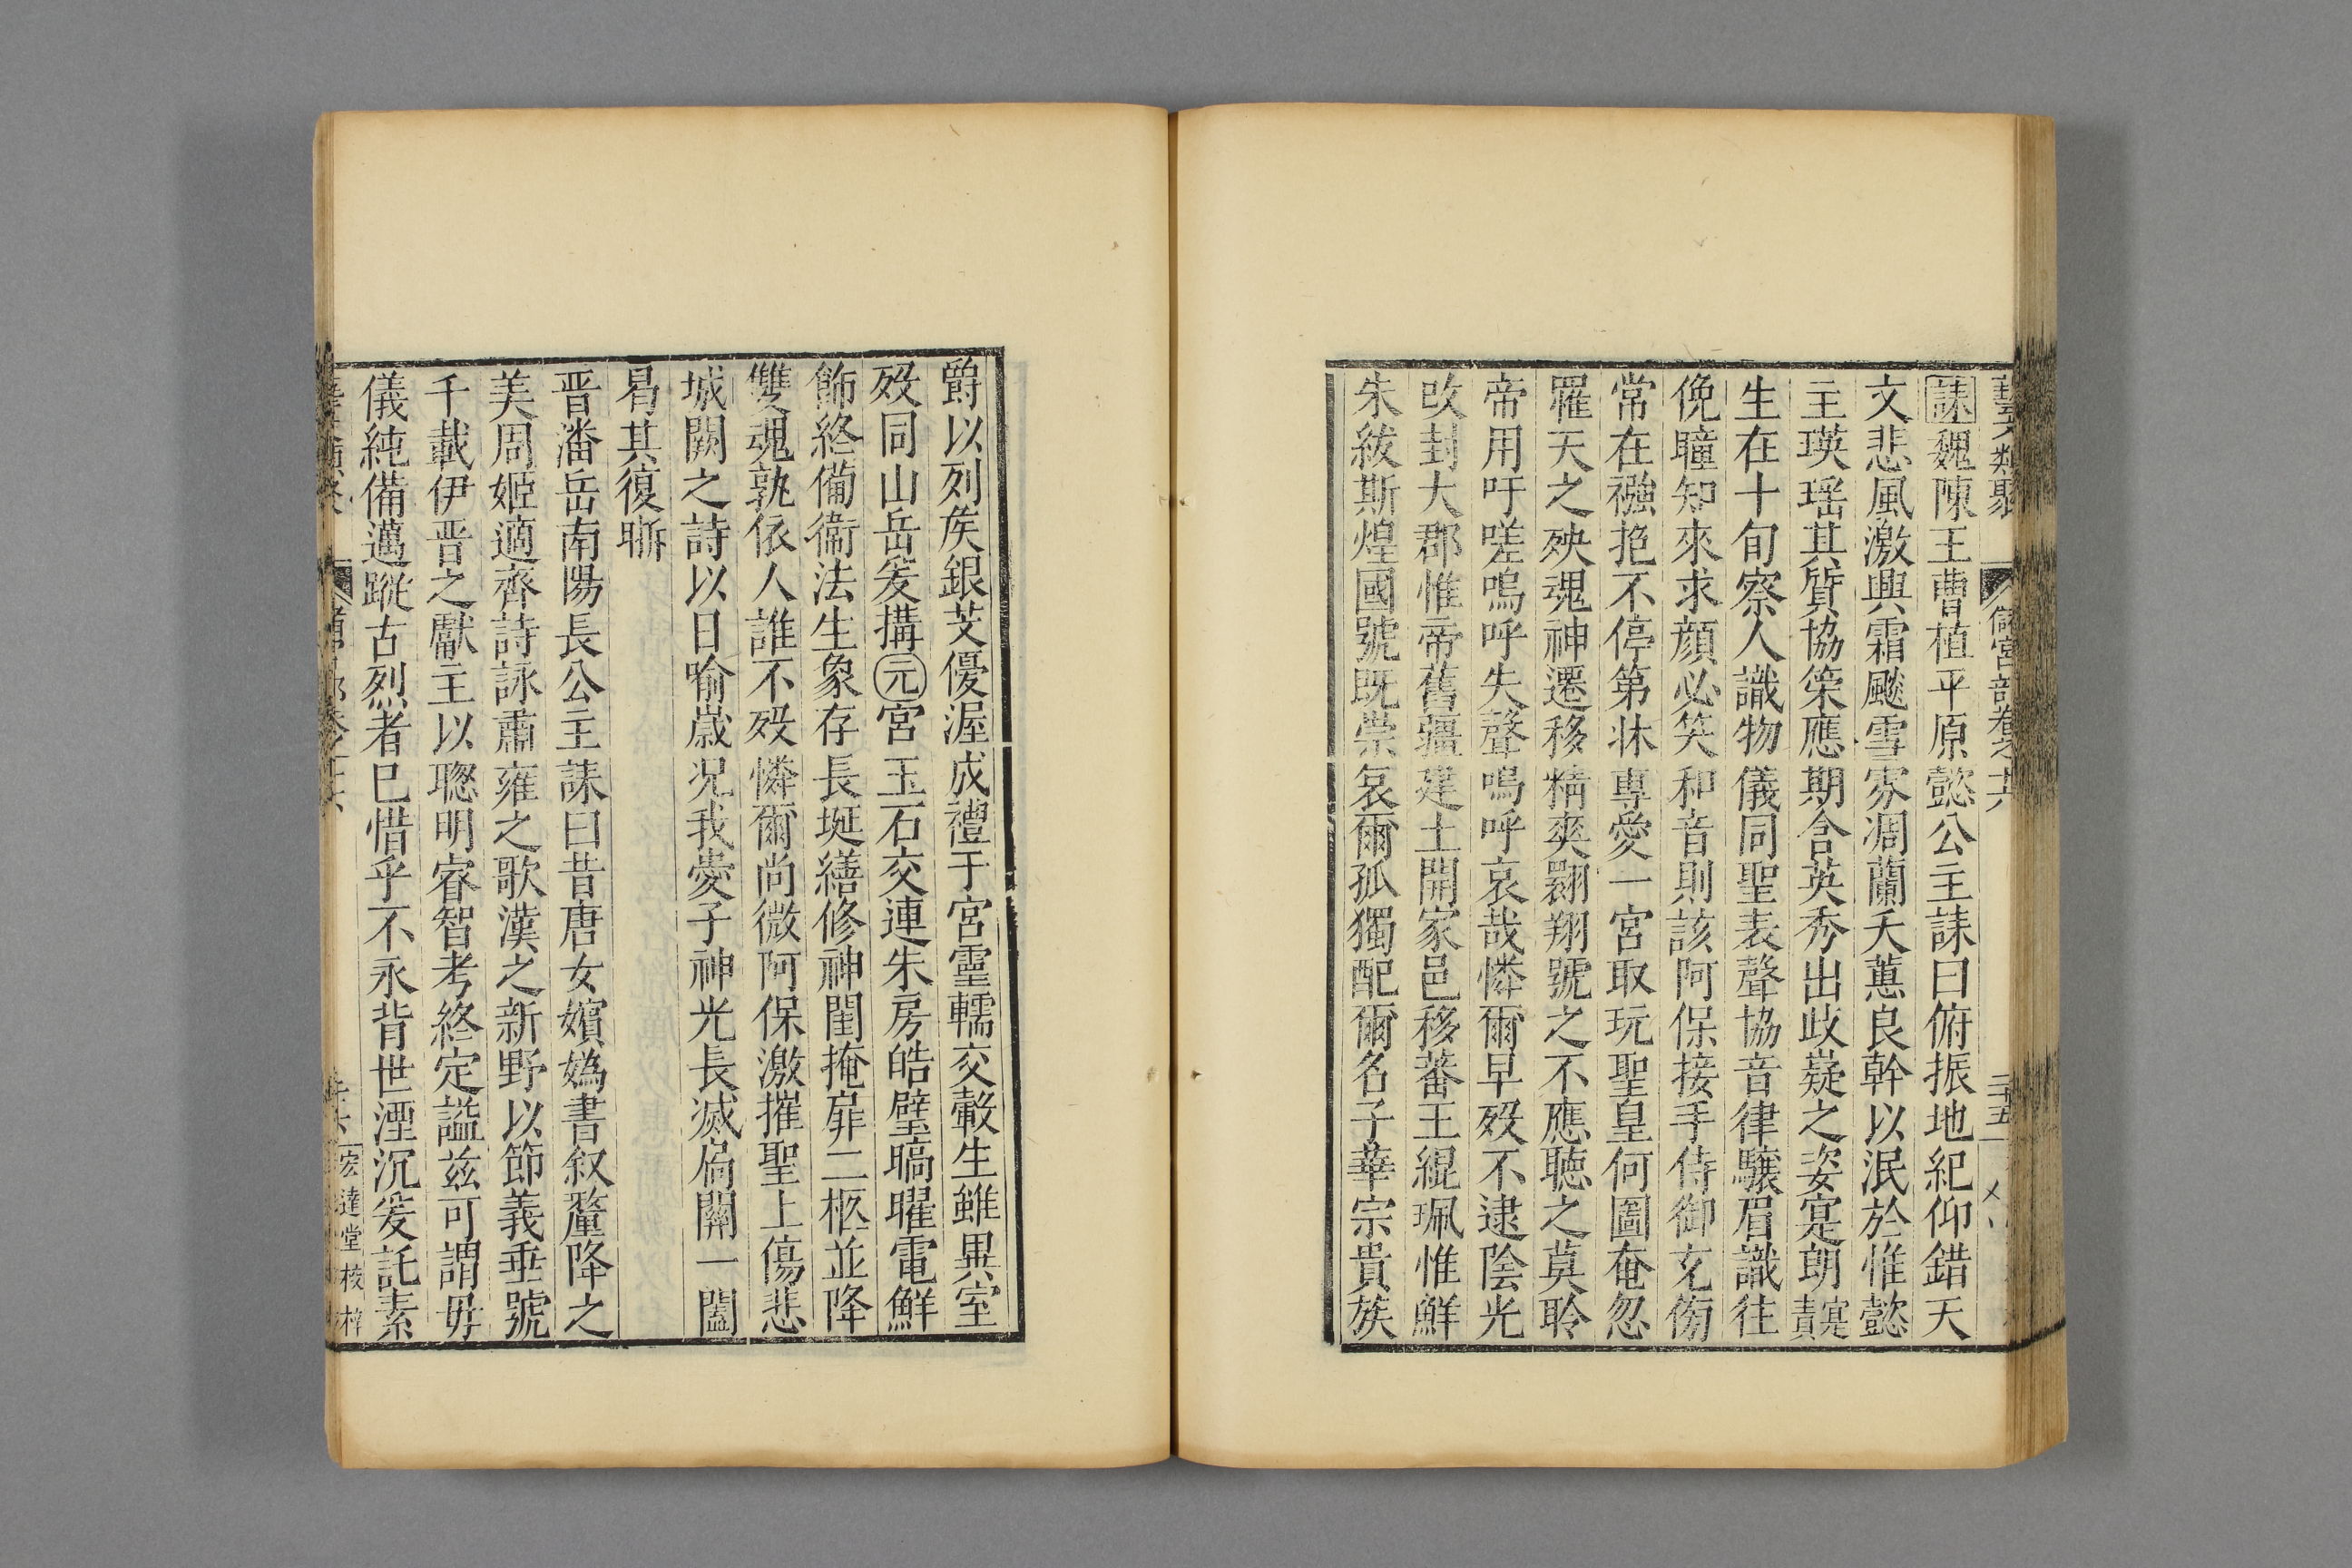 藝文類聚 儲宮部卷之十六 三十五
誄魏陳王曹植平原懿公主誄曰俯振地紀仰錯天
文悲風激興霜飈雪雰凋蘭夭蕙良幹以泯於惟懿
主瑛瑶其質協策應期含英秀出歧嶷之姿寔朗寔責
生在十旬察人識物儀同聖表聲協音律驤眉識往
俛瞳知來求顔必笑和音則該阿保接手侍御充傍
常在襁抱不停第牀專愛一宮取玩聖皇何圖奄忽
罹天之殃魂神遷移精爽翺翔號之不應聽之莫聆
帝用吁嗟嗚呼失聲嗚呼哀哉憐爾早歿不逮陰光
改封大郡惟帝舊疆建土開家邑移蕃王緄珮惟鮮
朱紱斯煌國號既崇哀爾孤獨配爾名子華宗貴族
爵以列矦銀艾優渥成禮于宮靈轜交轂生雖異室
歿同山岳爰搆元宮玉石交連朱房皓璧暠曜電鮮
飾終備衞法生象存長埏繕修神閨掩扉二柩並降
雙魂孰依人誰不歿憐爾尚微阿保激摧聖上傷悲
城闕之詩以日喻歲况我愛子神光長滅扃關一闔
曷其復晣
晋潘岳南陽長公主誄曰昔唐女嬪嬀書叙釐降之
美周姬適齊詩詠肅雍之歌漢之新野以節義垂號
千載伊晋之獻主以聰明睿智考終定謚兹可謂毋
儀純備邁蹤古烈者已惜乎不永背世湮沉爰託素
宏達堂校梓